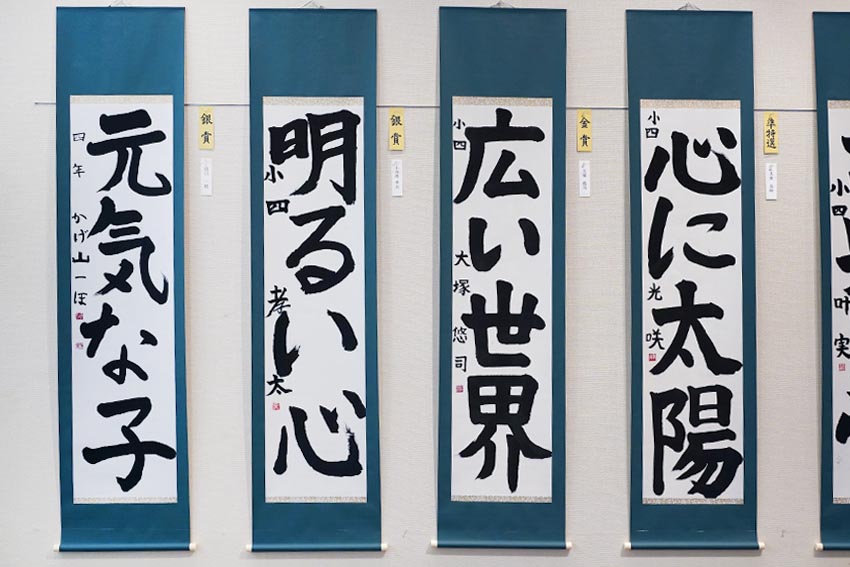 元気な子
四年 かげ山
銀賞
明るい心
小四 孝太
銀賞
広い世界
小四 大塚悠司
金賞
心に太陽
小四 光咲
準特選
小四